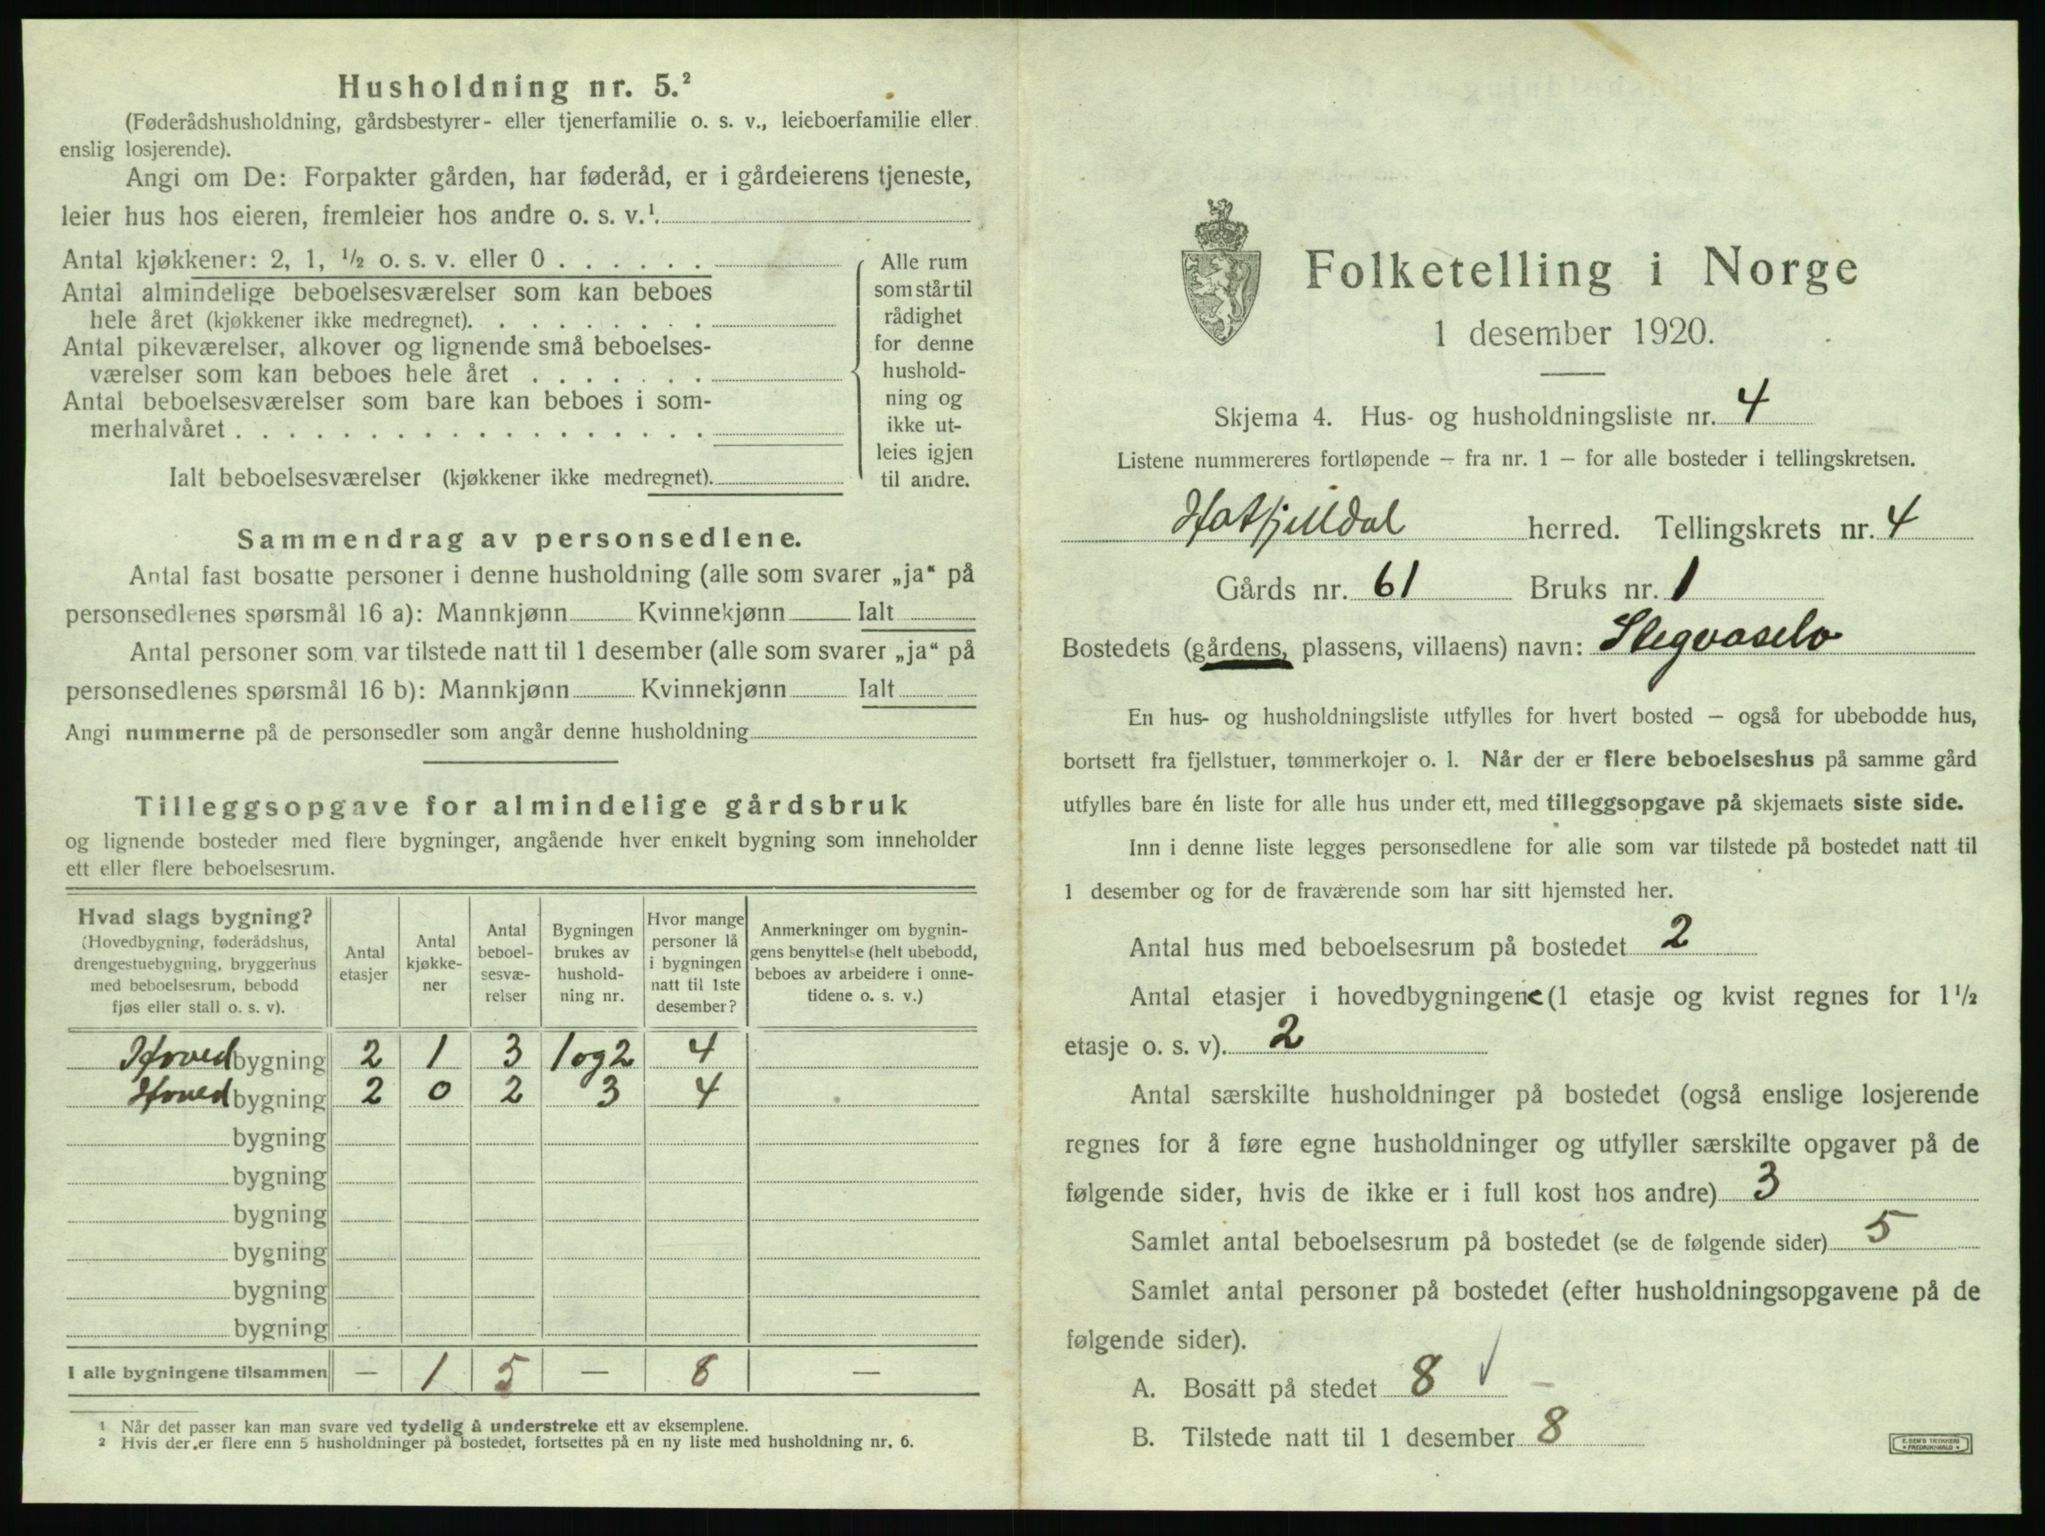 Husholdning nr. 5.²
(Føderådshusholdning, gårdsbestyrer- eller tjenerfamilie o. s. v., leieboerfamilie eller
enslig losjerende).
Angi om De: Forpakter gården, har føderåd, er i gårdeierens tjeneste,
leier hus hos eieren, fremleier hos andre o. s. v.¹
Antal kjøkkener: 2, 1, ½ o. s. v. eller 0 . . . . . .
Antal almindelige beboelsesværelser som kan beboes
hele året (kjøkkener ikke medregnet). . . . . . . . .
Antal pikeværelser, alkover og lignende små beboelses-
værelser som kan beboes hele året . . . . . . .
Antal beboelsesværelser som bare kan beboes i som-
merhalvåret . . . . . . . . . . . . . . . . . .
Ialt beboelsesværelser (kjøkkener ikke medregnet).
Alle rum
som står til
rådighet
for denne
hushold-
ning og
ikke ut-
leies igjen
til andre.
Sammendrag av personsedlene.
Antal fast bosatte personer i denne husholdning (alle som svarer „ja“ på
personsedlenes spørsmål 16 a): Mannkjønn Kvinnekjønn Ialt
Antal personer som var tilstede natt til 1 desember (alle som svarer „ja“ på
personsedlenes spørsmål 16 b): Mannkjønn Kvinnekjønn Ialt
Angi nummerne på de personsedler som angår denne husholdning
Tilleggsopgave for almindelige gårdsbruk
og lignende bosteder med flere bygninger, angående hver enkelt bygning som inneholder
ett eller flere beboelsesrum.
Hvad slags bygning?
(Hovedbygning, føderådshus,
drengestuebygning, bryggerhus
med beboelsesrum, bebodd
fjøs eller stall o. s. v).
Antal
etasjer
Antal
kjøkke-
ner
Antal
beboel-
sesvæ-
relser
Bygningen
brukes av
hushold-
ning nr.
Hvor mange
personer lå
i bygningen
natt til 1ste
desember?
Anmerkninger om bygnin-
gens benyttelse (helt ubebodd,
beboes av arbeidere i onne-
tidene o. s. v.)
Hovedbygning 2 1 3 1 og 2 4
Hovedbygning 2 0 2 3 4
bygning
bygning
bygning
bygning
bygning
bygning
I alle bygningene tilsammen — 1 5 — 8 —
¹ Når det passer kan man svare ved tydelig å understreke ett av eksemplene.
² Hvis der er flere enn 5 husholdninger på bostedet, fortsettes på en ny liste med husholdning nr. 6.
Folketelling i Norge
1 desember 1920.
Skjema 4. Hus- og husholdningsliste nr. 4
Listene nummereres fortløpende — fra nr. 1 — for alle bosteder i tellingskretsen.
Hatfjelldal herred. Tellingskrets nr. 4
Gårds nr. 61 Bruks nr. 1
Bostedets (gårdens, plassens, villaens) navn: Stegvaselv
En hus- og husholdningsliste utfylles for hvert bosted — også for ubebodde hus,
bortsett fra fjellstuer, tømmerkojer o. l. Når der er flere beboelseshus på samme gård
utfylles bare én liste for alle hus under ett, med tilleggsopgave på skjemaets siste side.
Inn i denne liste legges personsedlene for alle som var tilstede på bostedet natt til
1 desember og for de fraværende som har sitt hjemsted her.
Antal hus med beboelsesrum på bostedet 2
Antal etasjer i hovedbygningene (1 etasje og kvist regnes for 1½
etasje o. s. v). 2
Antal særskilte husholdninger på bostedet (også enslige losjerende
regnes for å føre egne husholdninger og utfyller særskilte opgaver på de
følgende sider, hvis de ikke er i full kost hos andre) 3
Samlet antal beboelsesrum på bostedet (se de følgende sider) 5
Samlet antal personer på bostedet (efter husholdningsopgavene på de
følgende sider).
A. Bosatt på stedet 8 ✓
B. Tilstede natt til 1 desember 8